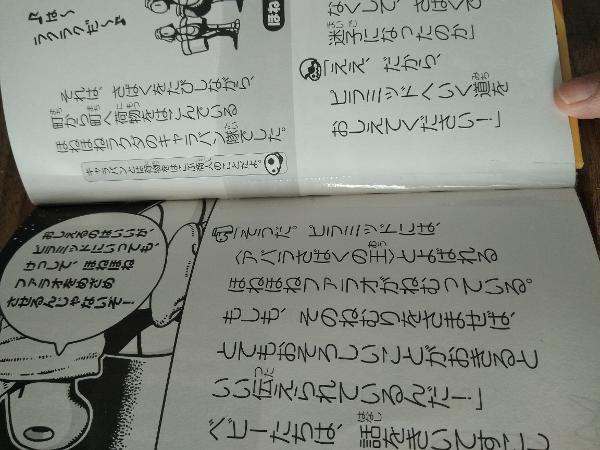 ♪は～
ラクラクだ～♪
それは、さばくをたびしながら、
町から町へ荷物をはこんでいる
ほねほねラクダのキャラバン隊でした。
キャラバンとは荷物をはこぶ商人のことだよ。
なくして、さばくで
迷子になったのか」
「ええ、だから、
ピラミッドへいく道を
おしえてください！」
おしえるのはいいが、
ピラミッドにいっても、
けっして、ほねほね
ファラオ
させるんじゃないぞ！
「そうだ。ピラミッドには、
〈アバラさばくの王〉とよばれる
ほねほねファラオがねむっている。
もしも、そのねむりをさませば、
とてもおそろしいことがおきると
いい伝えられているんだ！」
ベビーたちは、話をきいてすこし